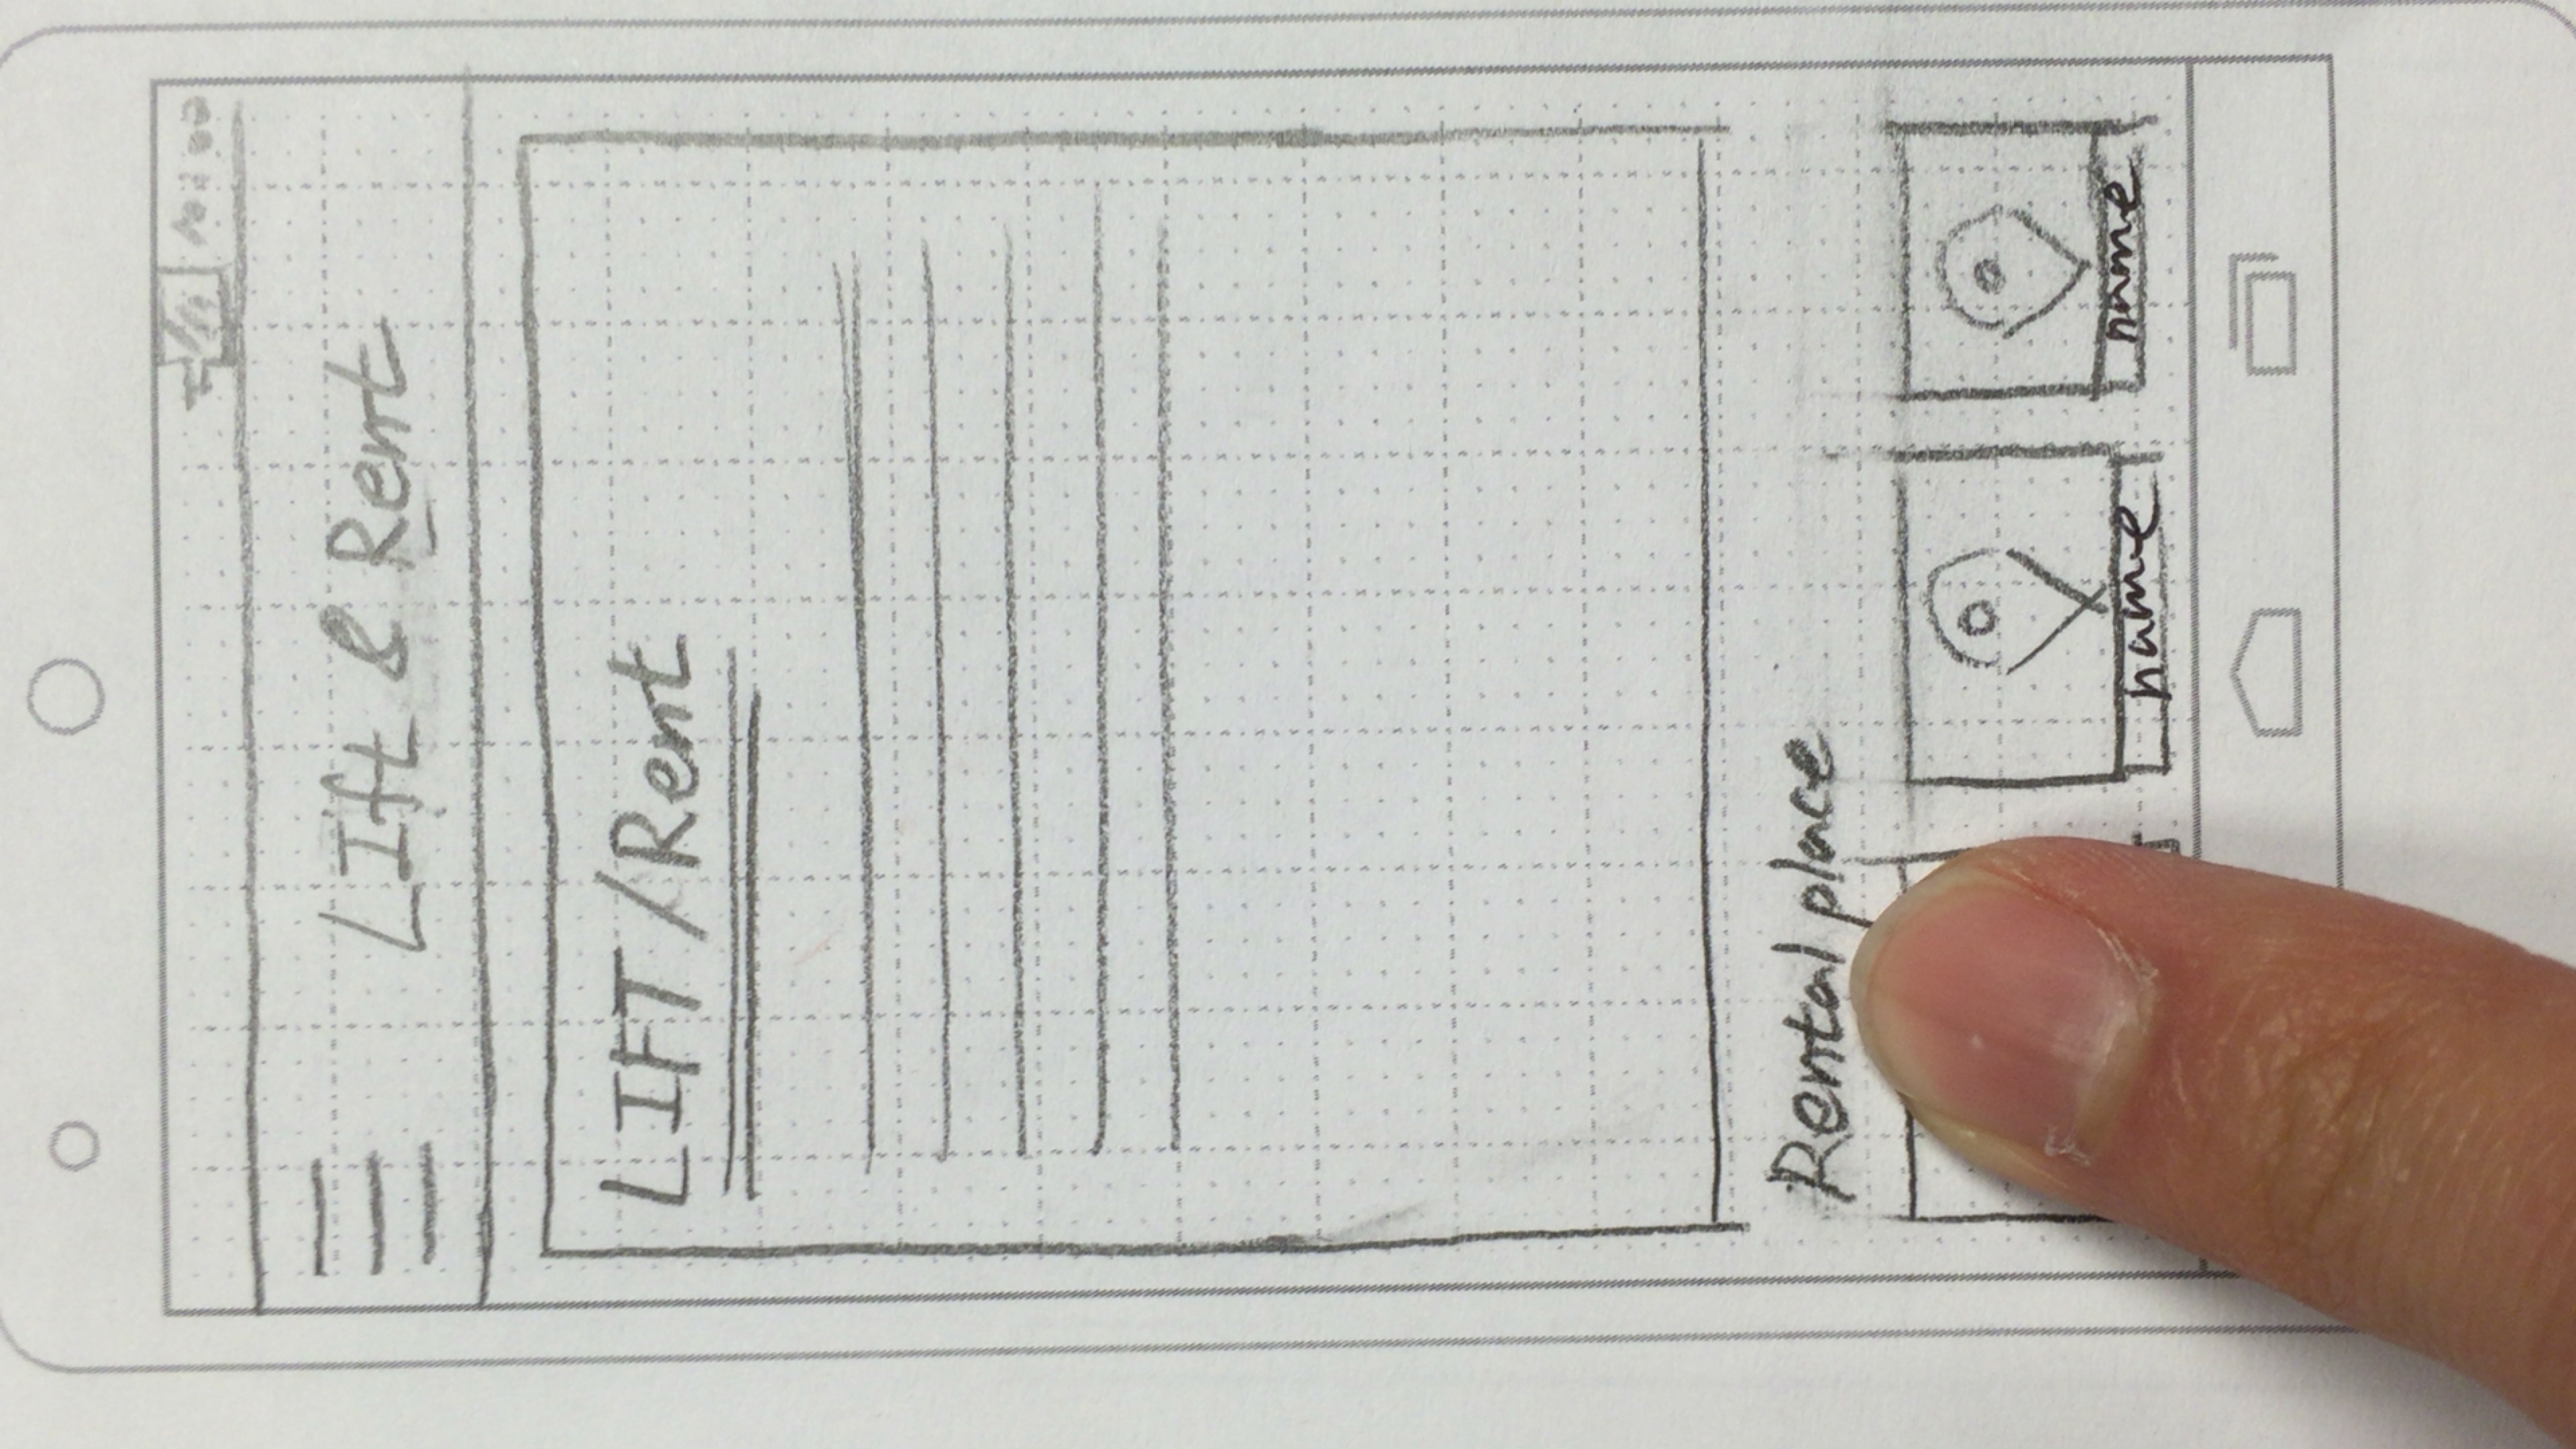 LIft & Rent
LIFT / Rent
Rental place
name name